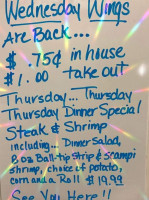 Wednesday Wings
Are Back...
$ .75¢ in house
$1.00 take out
Thursday... Thursday
Thursday Dinner Special
Steak & Shrimp
including... Dinner Salad,
8 oz Ball-tip Strip & scampi
shrimp, choice of potato,
corn and a Roll $19.99
See You Here!!